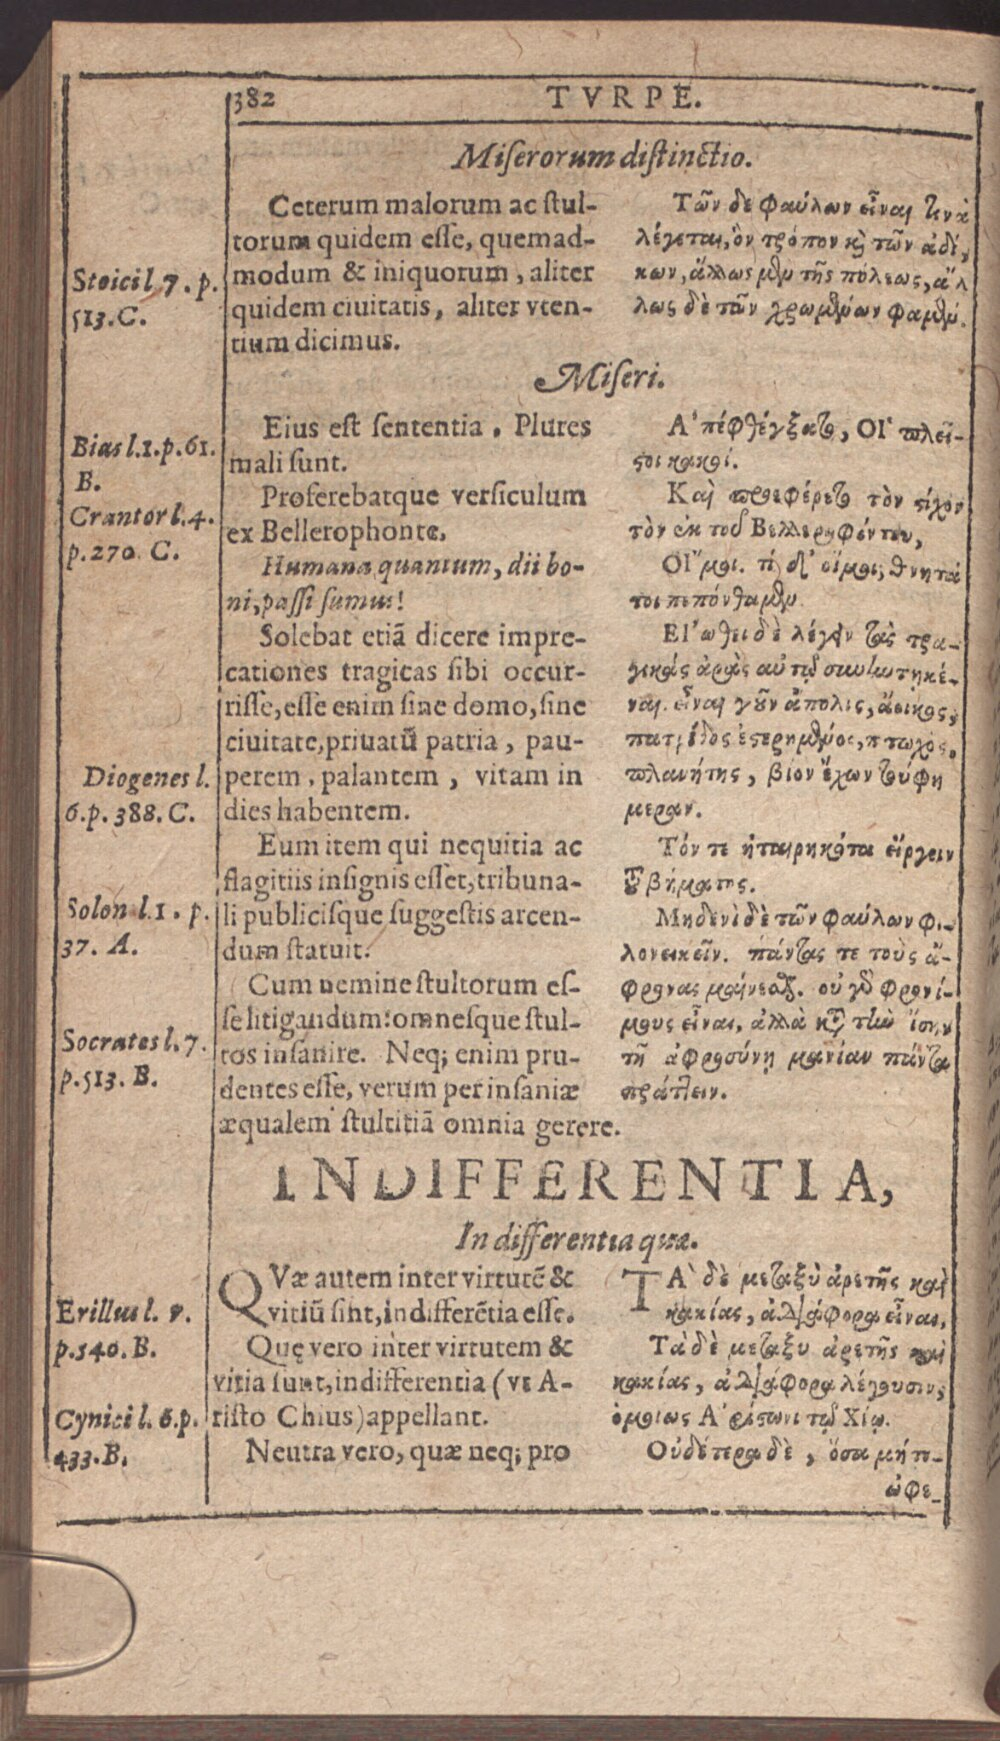 382 TVRPE.
Miserorum distinctio.
Stoici l 7. p.
513. C.
Bias l.1.p.61.
B.
Crantor l.4.
p.270 C.
Diogenes l.
6.p.388.C.
Solon l.1. p.
37. A.
Socrates l.7.
p.513. B.
Erillus l. 7.
p.540. B.
Cynici l. 6.p.
433.B.
Ceterum malorum ac stul-
torum quidem esse, quemad-
modum & iniquorum, aliter
quidem ciuitatis, aliter vten-
tium dicimus.
Τῶν δε φαύλων εἶναι τινὰ
λέγεται, ὃν τρόπον κὶ τῶν ἀδί,
κων, ἄλλως μὲν τῆς πόλεως, ἄλ
λως δὲ τῶν χρωμένων φαμὲν.
Miseri.
Eius est sententia. Plures
mali sunt.
Proferebatque versiculum
ex Bellerophonte.
Humana quantum, dii bo-
ni, passi sumus!
Solebat etiā dicere impre-
cationes tragicas sibi occur-
risse, esse enim sine domo, sine
ciuitate, priuatū patria, pau-
perem, palantem, vitam in
dies habentem.
Eum item qui nequitia ac
flagitiis insignis esset, tribuna-
li publicisque suggestis arcen-
dum statuit.
Cum nemine stultorum es-
se litigandum: omnesque stul-
tos insanire. Neq; enim pru-
dentes esse, verum per insaniæ
æqualem stultitiā omnia gerere.
Α᾽πέφθέγξατο, Οἱ πλεῖ-
στοι κακοί.
Καὶ προεφέρετο τὸν στίχον
τὸν ἐκ τοῦ Βελλεροφόντου,
Οἴμοι. τί δ᾽ οἴμοι; θνητά
τοι πεπόνθαμεν.
Εἰώθει δὲ λέγειν τὰς τρα-
γικάς ἀρὰς αὐτῷ συνηντηκέ-
ναι. εἶναι γοῦν ἄπολις, ἄοικος,
πατρίδος ἐστερημένος, πτωχὸς,
πλανήτης, βίον ἔχων τοὐφη
μεραν.
Τόν τε ἡταιρηκότα εἴργειν
τοῦ βήματος.
Μηδενὶ δὲ τῶν φαύλων φι-
λονεικεῖν. πάντας τε τοὺς ἄ-
φρονας μαίνεσθαι. οὐ γὸ φρονί-
μους εἶναι, ἀλλὰ κατὰ τὴν ἴσην
τῇ ἀφροσύνῃ μανίαν πάντα
πράττειν.
INDIFFERENTIA,
Indifferentia quæ.
QVæ autem inter virtutē &
vitiū sint, indifferētia esse.
Quę vero inter virtutem &
vitia sunt, indifferentia (vt A-
risto Chius) appellant.
Neutra vero, quæ neq; pro
ΤΑ᾽ δὲ μεταξὺ ἀρετῆς καὶ
κακίας, ἀδιάφορα εἶναι,
Τὰ δὲ μεταξυ ἀρετῆς καὶ
κακίας, ἀδιάφορα λέγουσιν,
ὁμοίως Α᾽ρίστωνι τῷ Χίῳ.
Οὐδέτερα δὲ, ὅσα μήτ-
ὠφε-